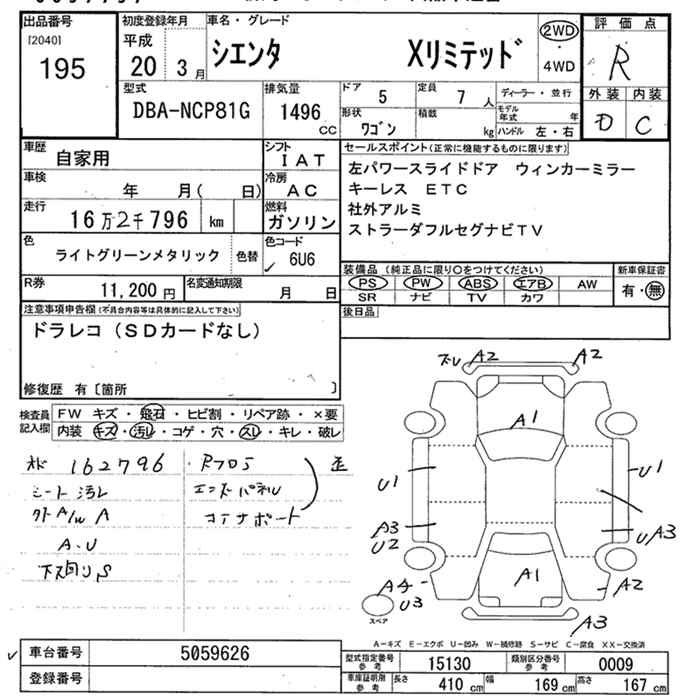 出品番号 初度登録年月 車名・グレード 評価点
[2040] 平成 シエンタ Xリミテッド 2WD R
195 20 3月 4WD
型式 排気量 ドア 5 定員 7人 ディーラー・並行 外装 内装
DBA-NCP81G 1496 CC 形状 ワゴン 積載 kg モデル年式 年 D C
ハンドル 左・右
車歴 自家用 シフト IAT セールスポイント(正常に機能するものに限ります)
車検 年 月( 日) 冷房 AC 左パワースライドドア ウィンカーミラー
走行 16万2千796 km 燃料 ガソリン キーレス ETC
社外アルミ
色 ライトグリーンメタリック 色替 色コード 6U6 ストラーダフルセグナビTV
R券 11,200円 名変通知期限 月 日 装備品(純正品に限り○をつけてください) 新車保証書
PS PW ABS エアB AW 有・無
SR ナビ TV カワ
注意事項申告欄(不具合内容等は具体的に記入して下さい) 後日品
ドラレコ(SDカードなし)
修復歴 有〔箇所 〕
検査員記入欄 FW キズ・飛石・ヒビ割・リペア跡・×要
内装 キズ・汚レ・コゲ・穴・スレ・キレ・破レ
162796
シート汚レ
A/W A
A・U
下廻りS
ズレ A2 A2
A1
U1 U1
A3 U2 UA3
A1
A4 U3 A2
スペア A3
A－キズ E－エクボ U－凹み W－補修跡 S－サビ C－腐食 XX－交換済
車台番号 5059626 型式指定番号 参考 15130 類別区分番号 参考 0009
登録番号 車庫証明用 参考 長さ 410 cm 幅 169 cm 高さ 167 cm